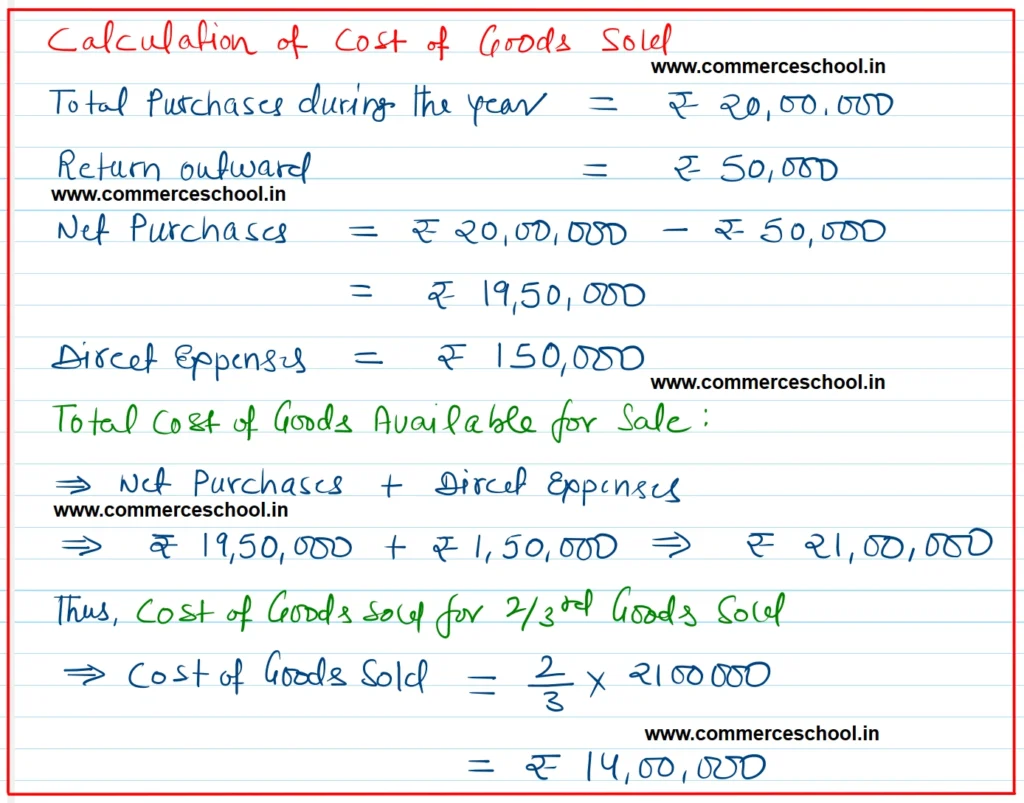 Calculation of Cost of Goods Sold
www.commerceschool.in
Total Purchases during the year = ₹ 20,00,000
Return outward = ₹ 50,000
www.commerceschool.in
Net Purchases = ₹ 20,00,000 - ₹ 50,000
= ₹ 19,50,000
Direct Expenses = ₹ 150,000
www.commerceschool.in
Total Cost of Goods Available for Sale:
⇒ Net Purchases + Direct Expenses
www.commerceschool.in
⇒ ₹ 19,50,000 + ₹ 1,50,000 ⇒ ₹ 21,00,000
Thus, Cost of Goods Sold for 2/3rd Goods Sold
⇒ Cost of Goods Sold = 2/3 × 2100000
www.commerceschool.in
= ₹ 14,00,000